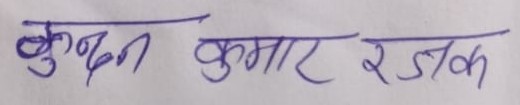 कुन्दन कुमार रजक